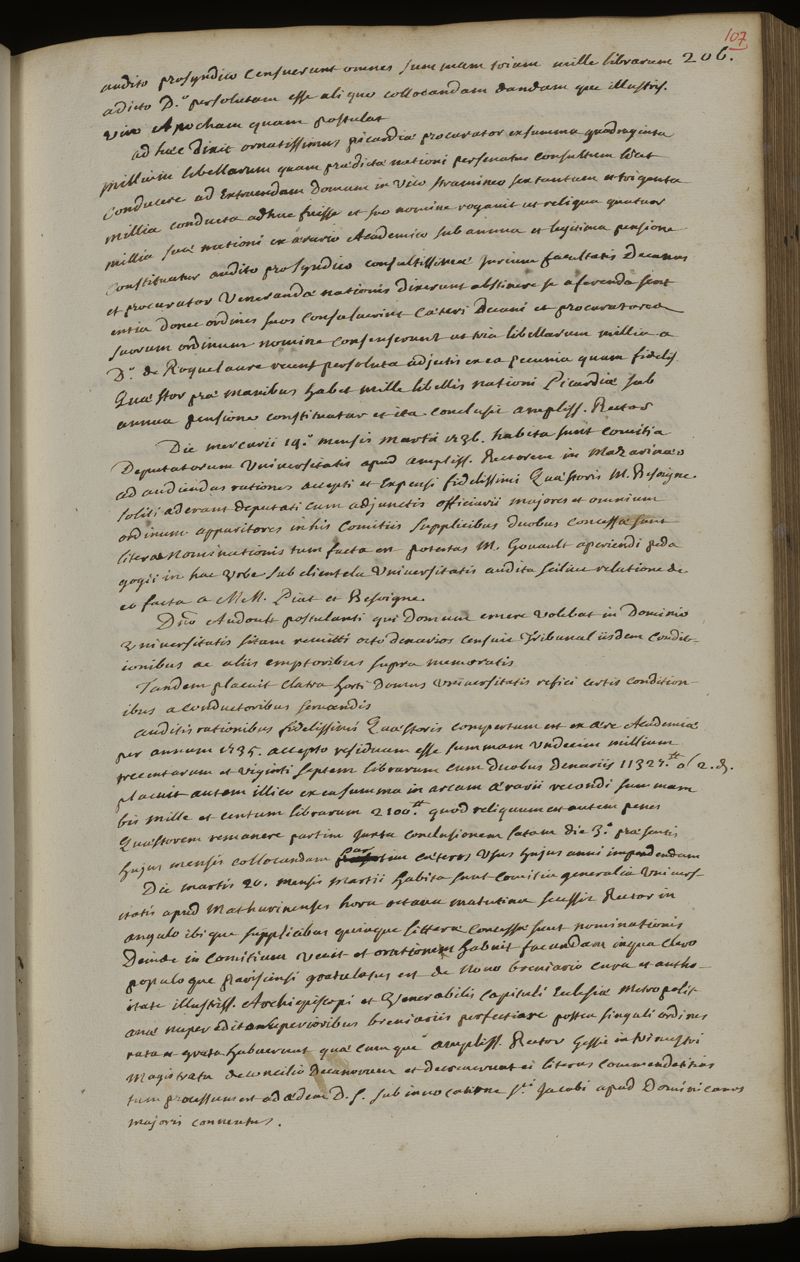 107
audito prosyndico censuerunt omnes summam trium mille librarum 206.
a dicto D.º persolutam esse alique collocandam dandam que illustris.
viro Apocham quam postulat
ad haec dixit ornatissimus picardiae procurator ex summa quadraginta
millium libellarum quam praedictae nationi per senatus consultum licet
conducere ad extruendam Domum in vico stramineo sex tantum et triginta
millia conducta adhuc fuisse et suo nomine rogavit ut reliqua quatuor
millia suae nationi ex aerario Academico sub annua et legitima pensione
constituantur audito prosyndico consultissimae jurium facultatis Decanus
et procurator Venerandae nationis dixerunt abstinere se a ferenda sent
entia donec ordines suos consuluerint caeteri Decani et procuratores
suorum ordinum nomine consenserunt ut tria libellarum millia a
D.º de Roquelaure recens persoluta adjectis ex ea pecunia quam fidelis
Quaestor prae manibus habet mille libellis nationi Picardiae sub
annua pensione constituantur et ita conclusit ampliss. Rector
Die mercurii 14.ª mensis martii 1736. habita sunt comitia
Deputatorum Universitatis apud ampliss. Rectorem in Mazarinaeo
ad audiendas rationes accepti et Expensi fidelissimi Quaestoris M. Besoigne.
soliti aderant deputati cum adjunctis officiarii majores et omnium
ordinum apparitores in his Comitiis supplicibus duobus concessae sunt
literae nominationis tum facta est potestas M. Gouault aperiendi peda
gogii in hac Urbe sub clientela Universitatis audita scilicet relatione de
eo facta a MM. Piat et Besoigne.
Dno Audoult postulanti qui Domum emere volebat in Dominio
Universitatis sitam remitti octo denarios censuit Tribunal iisdem condit-
ionibus ac aliis emptoribus supra memoratis
Tandem placuit clatra horti Domus Universitatis refici certis condition-
ibus a conductoribus servandis
auditis rationibus fidelissimi Quaestoris compertum est ex aere Academiae
per annum 1735. accepto residuam esse summam undecim millium
trecentarum et viginti septem librarum cum duobus denariis 11327.tt 0 s 2. d.
placuit autem illico ex ea summa in arcam aerarii recondi summam
bis mille et centum librarum 2100.tt quod reliquum est autem penes
Quaestorem remanere partim juxta conclusionem latam die 3.ª praesentis
hujus mensis collocandam partim caeteros usus hujus anni impendendam
Die martis 20. mensis martii habita sunt comitia generalia Univers-
itatis apud Mathurinenses hora octava matutina secessit Rector in
angulo ibique supplicibus quinque litterae concessae sunt nominationis
Deinde in comitium venit et orationem habuit facundam in qua clero
populoque Parisiensi gratulatus est de novo breviario cura et autho-
ritate illustriss. Archiepiscopi et Venerabilis capituli Ecclesiae Metropolit
anae nuper edito superioribus breviariis perfectiore postea singuli ordines
rata et grata habuerunt quaecumque ampliss. Rector gessit in trimestri
Magistratu de concilio Decanorum et decreverunt ei literas commendatitias
tum processum est ad aedem D. S. sub invocatione Sti. Jacobi apud Dominicanos
majoris conventus.